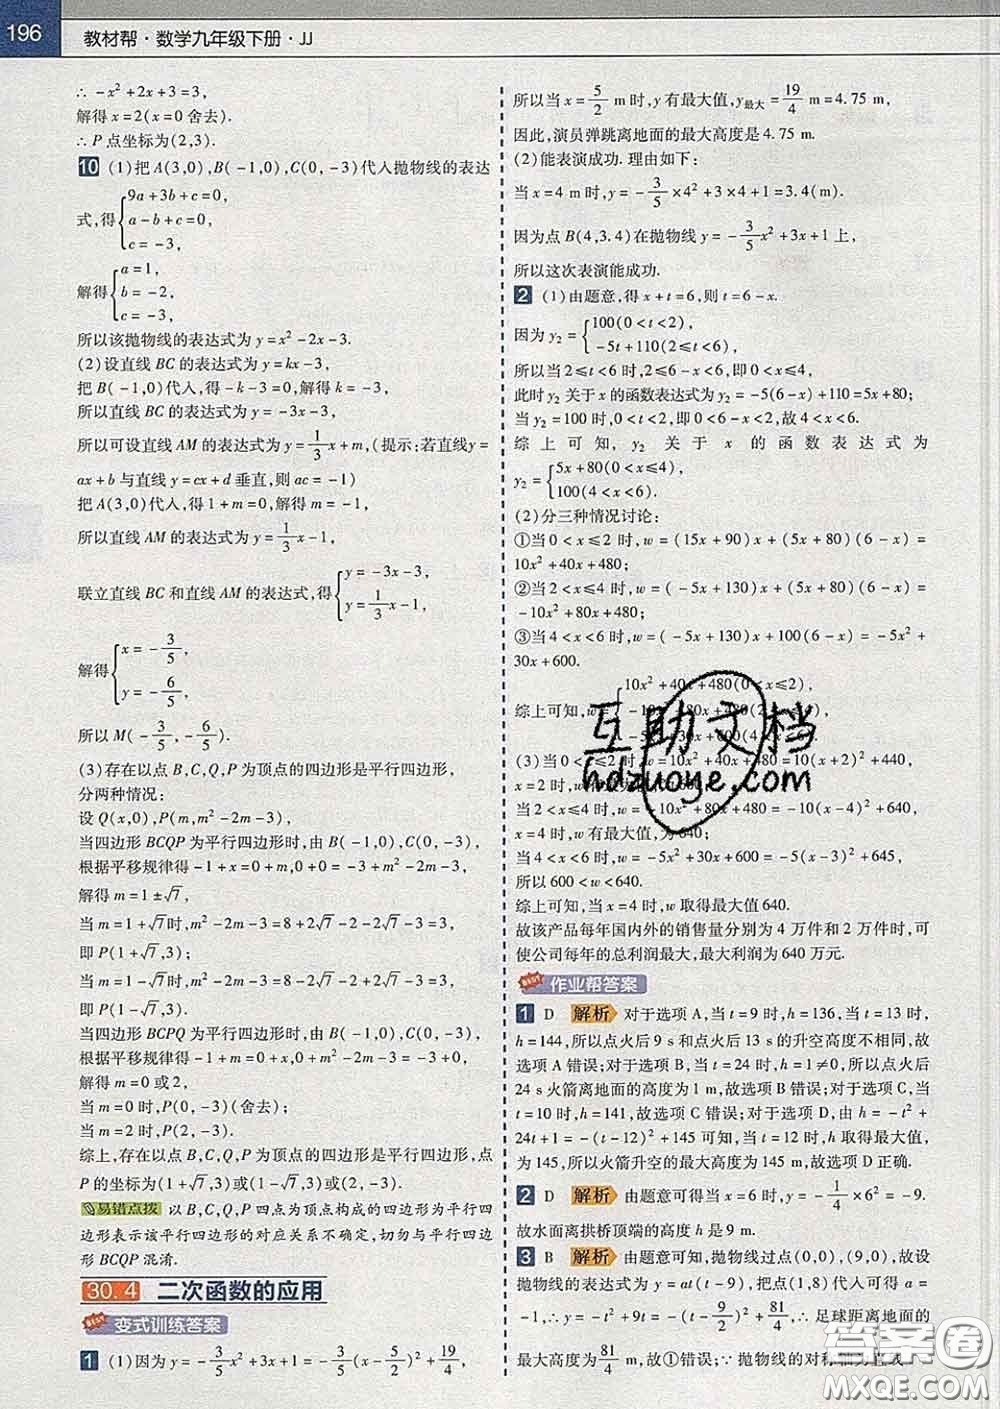 196
教材帮·数学九年级下册·JJ
∴ -x²+2x+3=3,
解得x=2(x=0舍去).
∴P点坐标为(2,3).
10 (1)把A(3,0),B(-1,0),C(0,-3)代入抛物线的表达
式,得{9a+3b+c=0, a-b+c=0, c=-3,
解得{a=1, b=-2, c=-3,
所以该抛物线的表达式为y=x²-2x-3.
(2)设直线BC的表达式为y=kx-3,
把B(-1,0)代入,得-k-3=0,解得k=-3,
所以直线BC的表达式为y=-3x-3,
所以可设直线AM的表达式为y=1/3x+m,(提示:若直线y=
ax+b与直线y=cx+d垂直,则ac=-1)
把A(3,0)代入,得1+m=0,解得m=-1,
所以直线AM的表达式为y=1/3x-1,
联立直线BC和直线AM的表达式,得{y=-3x-3, y=1/3x-1,
解得{x=-3/5, y=-6/5,
所以M(-3/5,-6/5).
(3)存在以点B,C,Q,P为顶点的四边形是平行四边形,
分两种情况:
设Q(x,0),P(m,m²-2m-3),
当四边形BCQP为平行四边形时,由B(-1,0),C(0,-3),
根据平移规律得-1+x=0+m,0+0=-3+m²-2m-3,
解得m=1±√7,
当m=1+√7时,m²-2m-3=8+2√7-2-2√7-3=3,
即P(1+√7,3);
当m=1-√7时,m²-2m-3=8-2√7-2+2√7-3=3,
即P(1-√7,3).
当四边形BCPQ为平行四边形时,由B(-1,0),C(0,-3),
根据平移规律得-1+m=0+x,0+m²-2m-3=-3+0,
解得m=0或2,
当m=0时,P(0,-3)(舍去);
当m=2时,P(2,-3).
综上,存在以点B,C,Q,P为顶点的四边形是平行四边形,点
P的坐标为(1+√7,3)或(1-√7,3)或(2,-3).
易错点拨 以B,C,Q,P四点为顶点构成的四边形为平行四
边形表示该平行四边形的对应关系不确定,切勿与平行四边
形BCQP混淆.
30.4 二次函数的应用
变式训练答案
1 (1)因为y=-3/5x²+3x+1=-3/5(x-5/2)²+19/4,
所以当x=5/2 m时,y有最大值,y最大=19/4 m=4.75 m,
因此,演员弹跳离地面的最大高度是4.75 m.
(2)能表演成功.理由如下:
当x=4 m时,y=-3/5×4²+3×4+1=3.4(m).
因为点B(4,3.4)在抛物线y=-3/5x²+3x+1上,
所以这次表演能成功.
2 (1)由题意,得x+t=6,则t=6-x.
因为y₂={100(0<t<2), -5t+110(2≤t<6),
所以当2≤t<6时,2≤6-x<6,即0<x≤4,
此时y₂关于x的函数表达式为y₂=-5(6-x)+110=5x+80;
当y₂=100时,0<t<2,即0<6-x<2,故4<x<6.
综上可知,y₂关于x的函数表达式为
y₂={5x+80(0<x≤4), 100(4<x<6).
(2)分三种情况讨论:
①当0<x≤2时,w=(15x+90)x+(5x+80)(6-x)=
10x²+40x+480;
②当2<x≤4时,w=(-5x+130)x+(5x+80)(6-x)=
-10x²+80x+480;
③当4<x<6时,w=(-5x+130)x+100(6-x)=-5x²+
30x+600.
综上可知,w={10x²+40x+480(0<x≤2), -10x²+80x+480(2<x≤4), -5x²+30x+600(4<x<6).
(3)当0<x≤2时,w=10x²+40x+480=10(x+2)²+440,
x=2时,w有最大值,为600;
当2<x≤4时,w=-10x²+80x+480=-10(x-4)²+640,
x=4时,w有最大值,为640;
当4<x<6时,w=-5x²+30x+600=-5(x-3)²+645,
所以600<w<640.
综上可知,当x=4时,w取得最大值640.
故该产品每年国内外的销售量分别为4万件和2万件时,可
使公司每年的总利润最大,最大利润为640万元.
作业帮答案
1 D 解析 对于选项A,当t=9时,h=136,当t=13时,
h=144,所以点火后9 s和点火后13 s的升空高度不相同,故
选项A错误;对于选项B,当t=24时,h=1≠0,所以点火后
24 s火箭离地面的高度为1 m,故选项B错误;对于选项C,当
t=10时,h=141,故选项C错误;对于选项D,由h=-t²+
24t+1=-(t-12)²+145可知,当t=12时,h取得最大值,
为145,所以火箭升空的最大高度为145 m,故选项D正确.
2 D 解析 由题意可得当x=6时,y=-1/4×6²=-9.
故水面离拱桥顶端的高度h是9 m.
3 B 解析 由题意可知,抛物线过点(0,0),(9,0),故设
抛物线的表达式为y=at(t-9),把点(1,8)代入可得a=
-1,∴y=-t²+9t=-(t-9/2)²+81/4,∴足球距离地面的
最大高度为81/4 m,故①错误;∵抛物线的对称轴为直线
互助文档
hdzuoye.com
答案圈
MXQE.COM